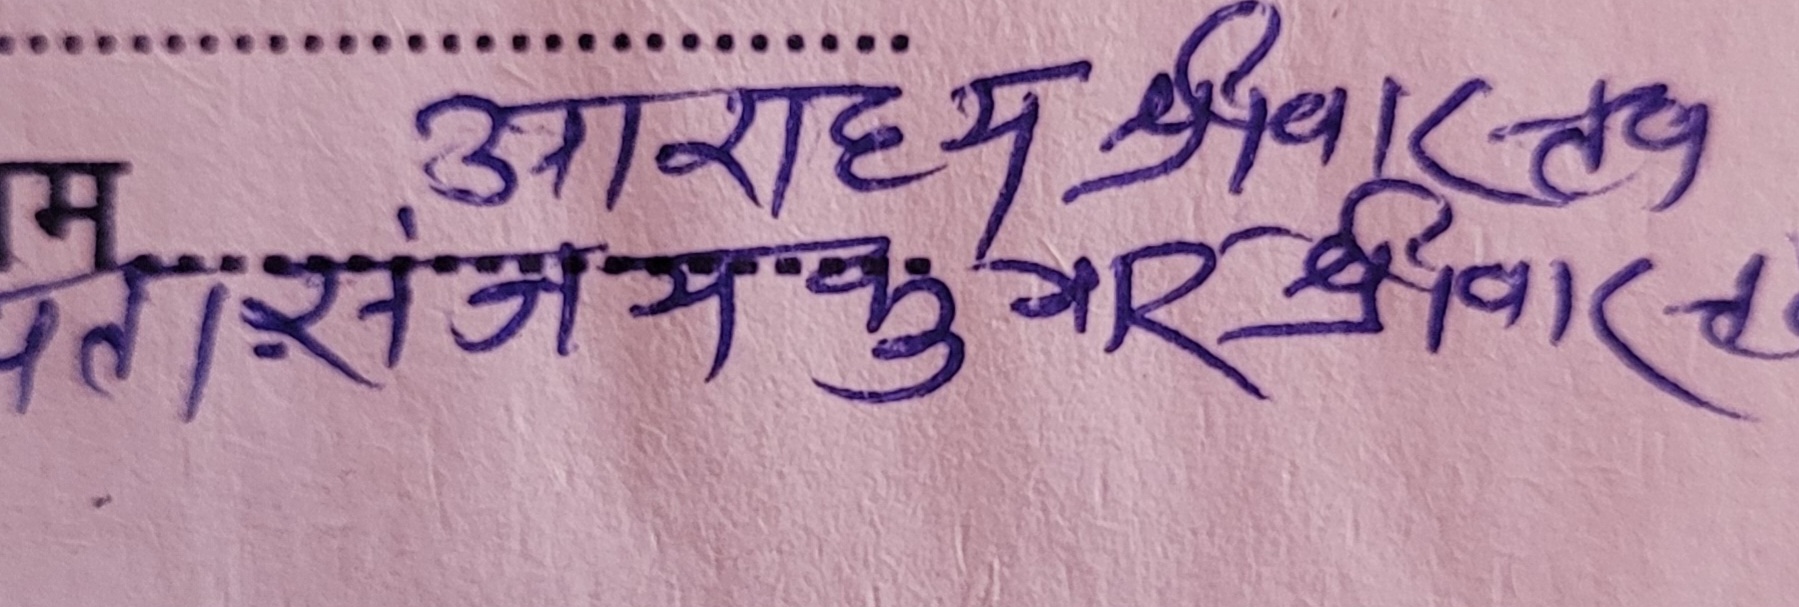 आराध्य श्रीवास्तव
ाम
पता संजय कुमार श्रीवास्त